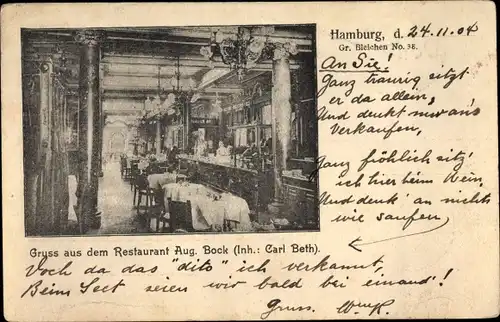 Hamburg, d. 24.11.04
Gr. Bleichen No. 38.
An Sie!
Ganz traurig sitzt
er da allein,
Und denkt nur an's
verkaufen,
Ganz fröhlich sitz
ich hier beim Wein,
Und denk' an nichts
wie saufen,
Gruss aus dem Restaurant Aug. Bock (Inh.: Carl Beth).
Doch da das "dito" ich verkannt,
Beim Sect seien wir bald bei einand!
Gruss.